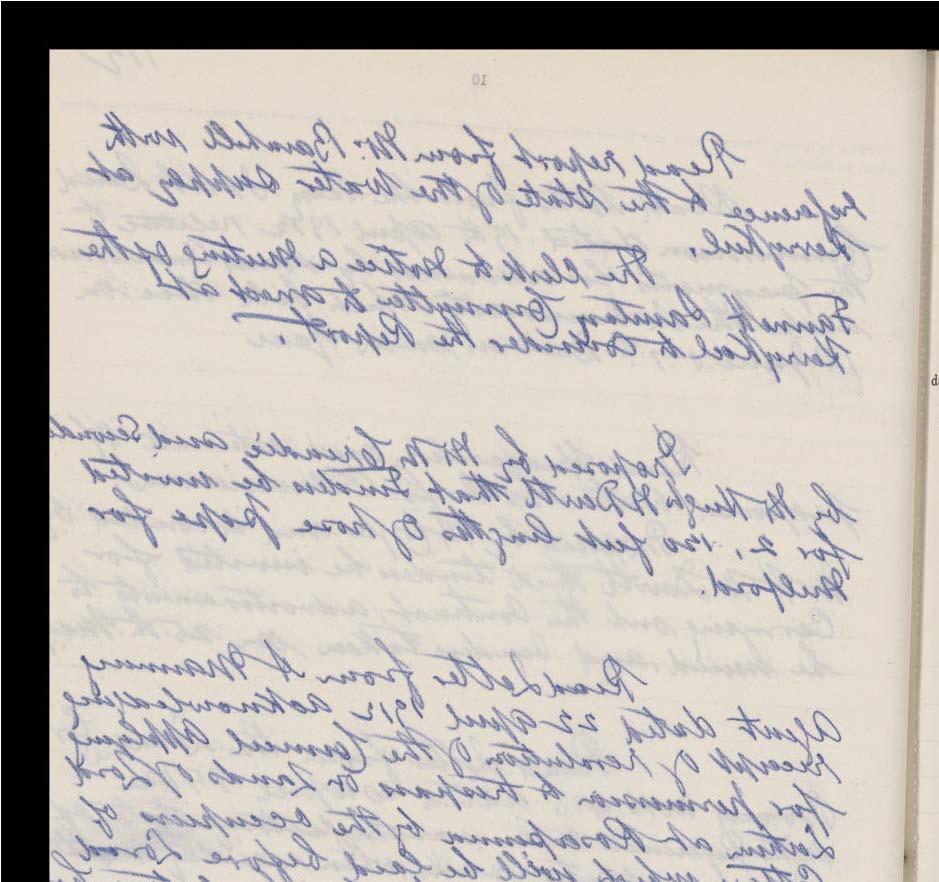 10
Read report from Mr. Barnhill with
reference to the State of the Water Supply at
Kerrykeel.
The Clerk to Notice a Meeting of the
Fannett Sanitary Committee to meet at
Kerrykeel to Consider the Report.
Proposed by Mr and
by Mr Hugh that Tenders be invited
for 2, 120 feet lengths of hose pipe for
Milford.
Read Letter from Manning
Agent dated 22 April 1912 acknowledging
receipt of resolution of the Council applying
for permission to trespass on Lands of Lord
Leitrim at Rosapenna by the occupiers of
which will be laid before Lord